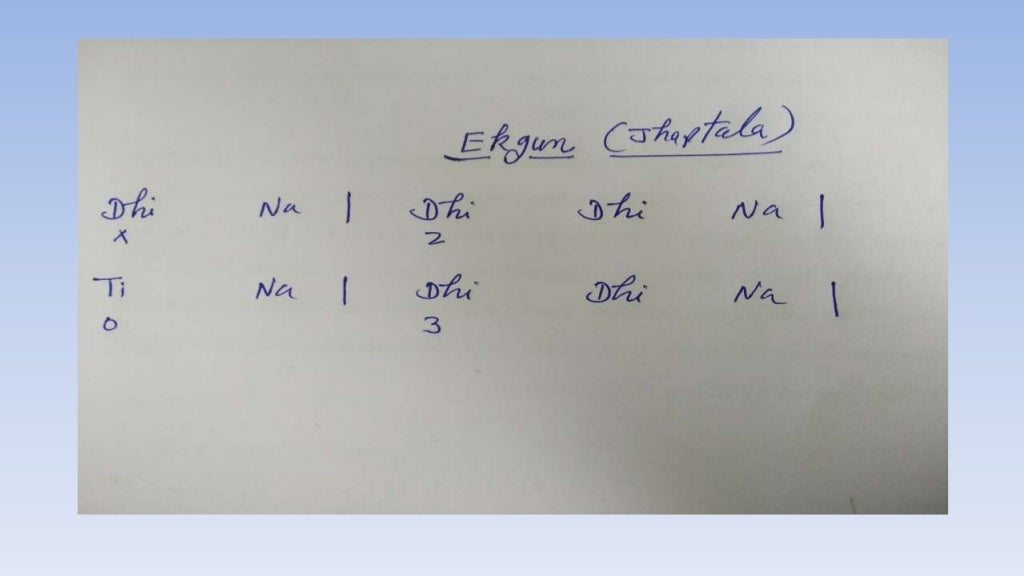 Ekgun (Jhaptala)
Dhi Na | Dhi Dhi Na |
x 2
Ti Na | Dhi Dhi Na |
0 3